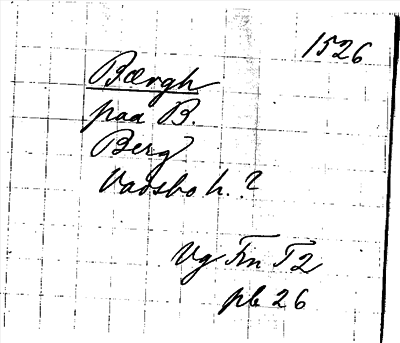 1526
Bærgh
paa B.
Berg
Vadsbo h. ?
Vg Frn T2
pb 26